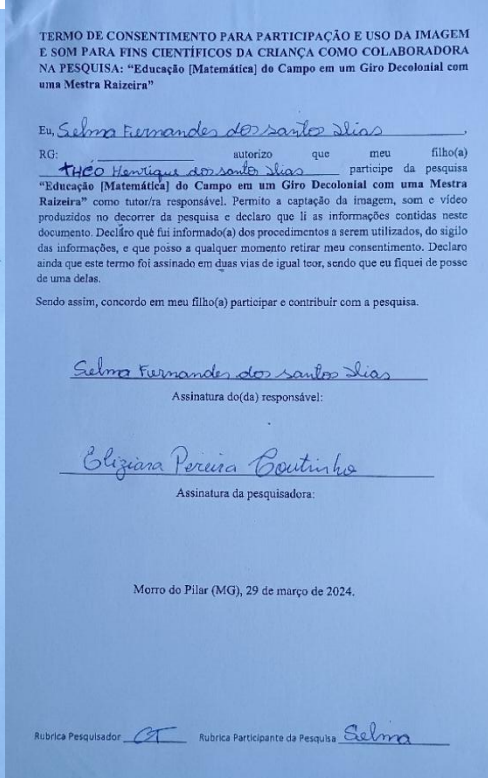 TERMO DE CONSENTIMENTO PARA PARTICIPAÇÃO E USO DA IMAGEM
E SOM PARA FINS CIENTÍFICOS DA CRIANÇA COMO COLABORADORA
NA PESQUISA: “Educação [Matemática] do Campo em um Giro Decolonial com
uma Mestra Raizeira”
Eu, Selma Fernandes dos santos Dias,
RG: autorizo que meu filho(a)
THEO Henrique dos santos Dias participe da pesquisa
“Educação [Matemática] do Campo em um Giro Decolonial com uma Mestra
Raizeira” como tutor/ra responsável. Permito a captação da imagem, som e vídeo
produzidos no decorrer da pesquisa e declaro que li as informações contidas neste
documento. Declaro que fui informado(a) dos procedimentos a serem utilizados, do sigilo
das informações, e que posso a qualquer momento retirar meu consentimento. Declaro
ainda que este termo foi assinado em duas vias de igual teor, sendo que eu fiquei de posse
de uma delas.
Sendo assim, concordo em meu filho(a) participar e contribuir com a pesquisa.
Selma Fernandes dos santos Dias
Assinatura do(da) responsável:
Eliziara Pereira Coutinho
Assinatura da pesquisadora:
Morro do Pilar (MG), 29 de março de 2024.
Rubrica Pesquisador Rubrica Participante da Pesquisa Selma